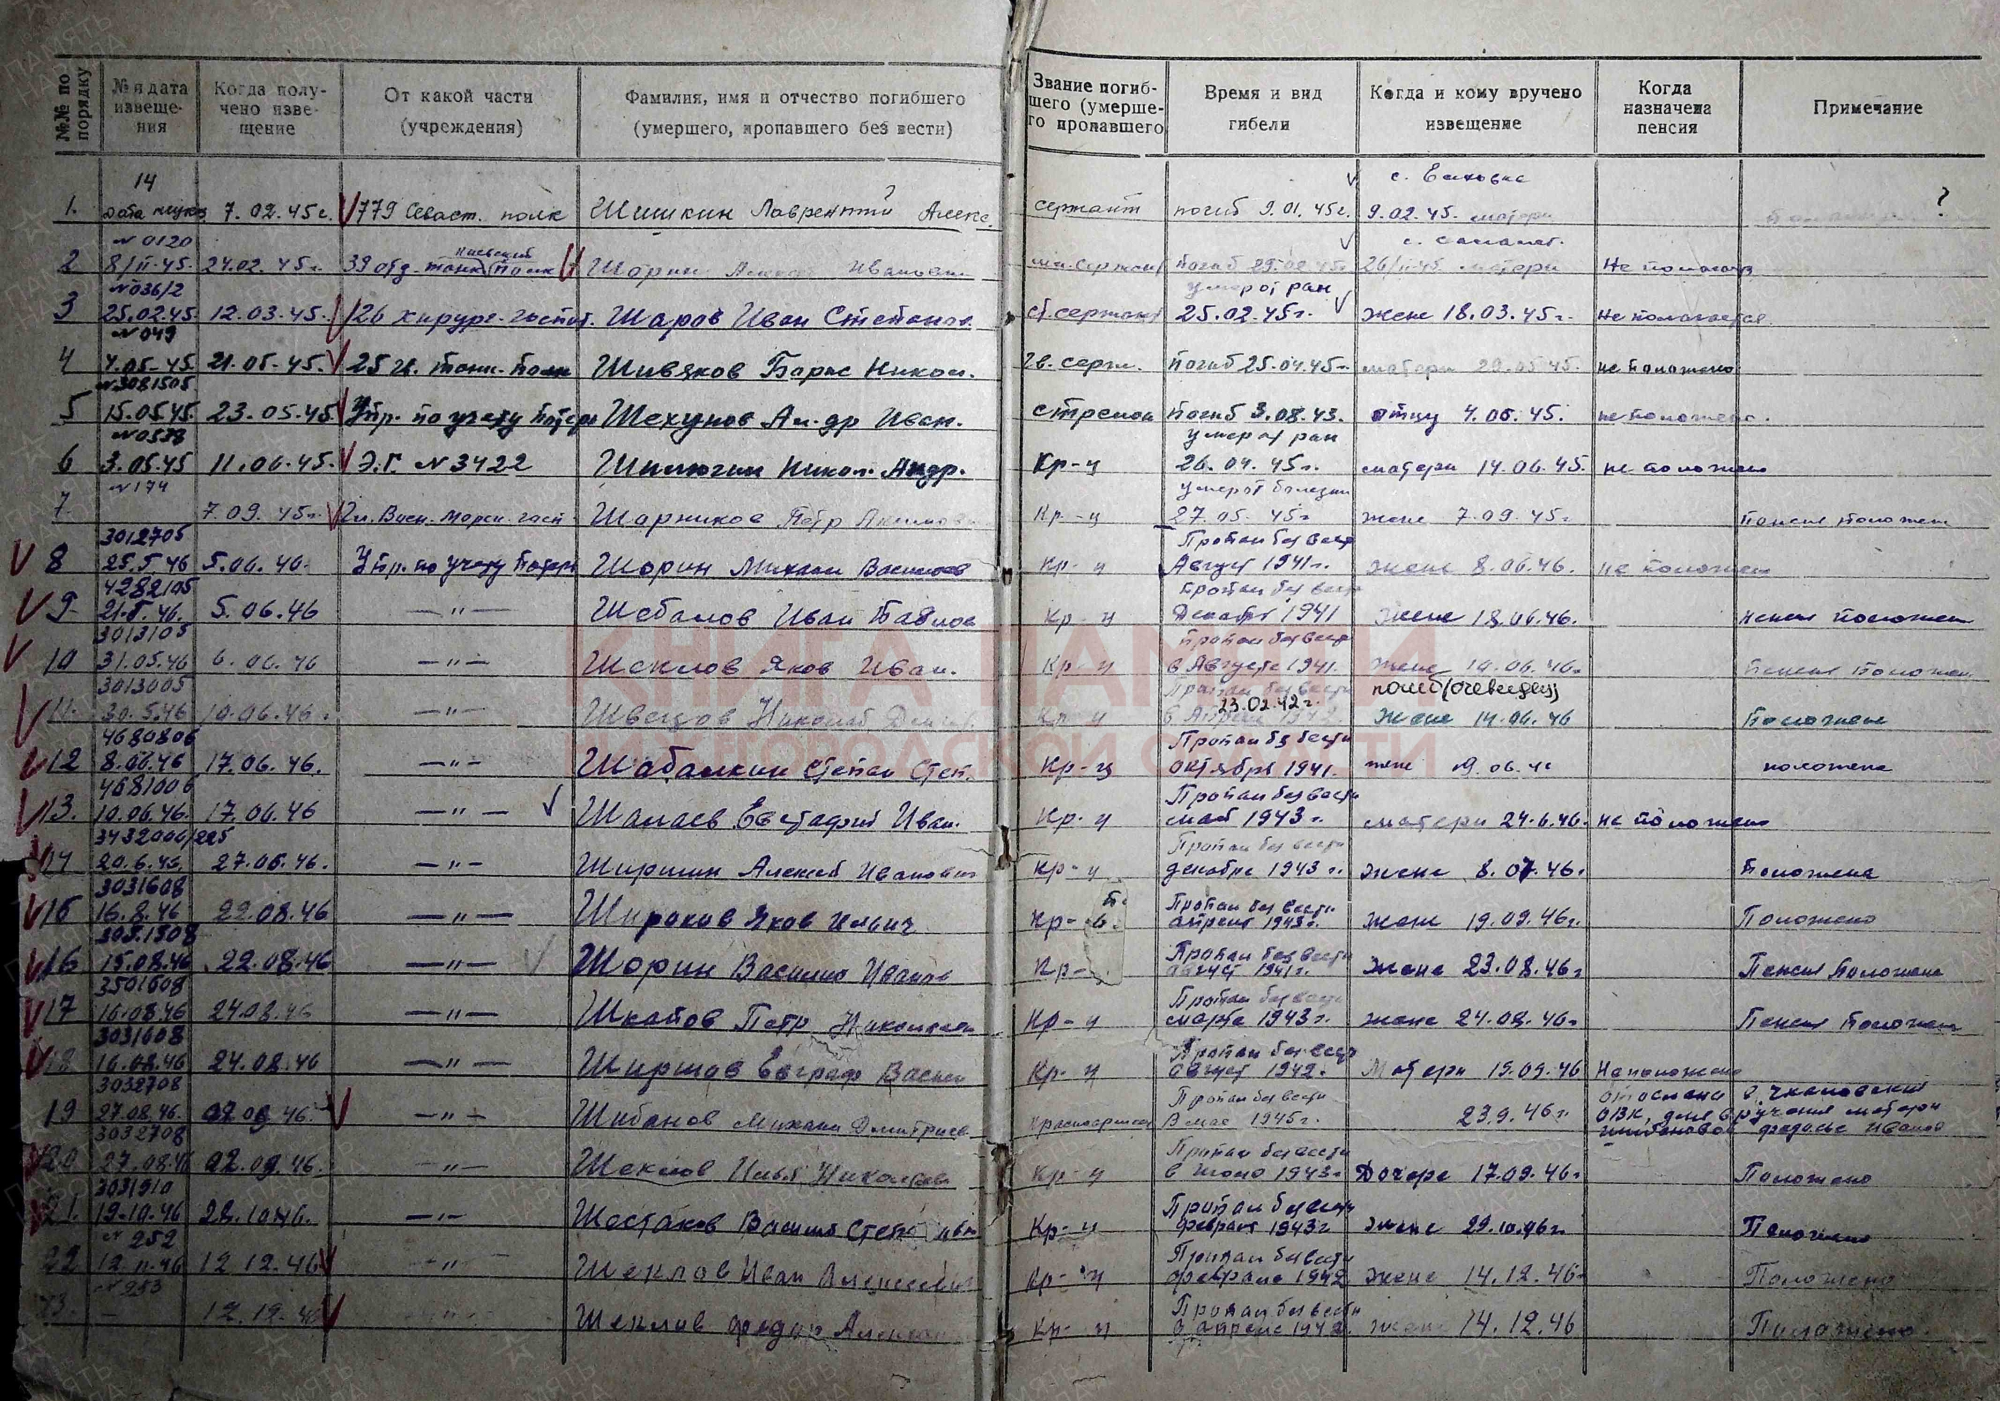 №№ по порядку
№ и дата извеще-
ния
Когда полу-
чено изве-
щение
От какой части
(учреждения)
Фамилия, имя и отчество погибшего
(умершего, пропавшего без вести)
Звание погиб-
шего (умерше-
го пропавшего
Время и вид
гибели
Когда и кому вручено
извещение
Когда
назначена
пенсия
Примечание
14 с.
1. дата 7.02.45г. 779 Севаст. полк Шишкин Лаврентий Алекс. сержант погиб 9.01.45г. 9.02.45. матери ?
№ 0120
2 8/II-45. 24.02.45г. 39 отд. танк. полк Шорин Иванович мл. сержант погиб матери не полагает
№036/2 умер от ран
3 25.02.45 12.03.45. 126 хирург. госпит. Шаров Иван Степанов. ст. сержант 25.02.45г. жене 18.03.45г. не полагается
№049
4 4.05.45 21.05.45. 25 гв. танк. полк Шивяков Борис Никол. гв. серж. погиб 25.04.45г. матери не положено
№3081505
5 15.05.45 23.05.45 Упр. по учету потерь Шехунов Ал-др Иван. стрелок погиб 3.08.43. отцу 4.06.45. не положено.
№0538 умер от ран
6 3.05.45 11.06.45. Э.Г. №3422 Никол. Андр. кр-ц 26.04.45г. матери 14.06.45. не положен
№174 умер от болезни
7. 7.09.45г. Гл. Воен. Морск. госп Шорников Петр кр-ц 27.05.45г жене 7.09.45г пенсия положен
3012705 Пропал без вест
8 25.5.46 5.06.46. Упр. по учету потерь Шорин Михаил Васильев кр-ц Август 1941г. жене 8.06.46. не положен
4282105 пропал без вест
9. 21.5.46. 5.06.46 —"— Шебалов Иван Павлов кр-ц Декабрь 1941 жене 18.06.46. пенсия положен
3013105 Пропал без вест
10 31.05.46 6.06.46 —"— Шеклов Яков Иван. кр-ц в Августе 1941. жене 46г. пенсия положен
3013005 Пропал без вести погиб (очевидец)
11. 30.5.46 10.06.46г. —"— Швецов Николай Дмит. кр-ц 23.02.42г. жене 14.06.46 положен
4680806 Пропал без вести
12 8.06.46 17.06.46. —"— Шабалкин Степан Степ. кр-ц октябрь 1941. жене положена
4681006 Пропал без вести
13. 10.06.46. 17.06.46 —"— Шалаев Евстафий Иван. кр-ц май 1943г. матери 24.6.46. не положен
3432006/225 Пропал без вести
14 20.6.46. 27.06.46. —"— Ширшин Алексей Иванович кр-ц декабрь 1943г. жене 8.07.46г. положена
3031608 Пропал без вести
15 16.8.46 22.08.46 —"— Широков Яков Ильич кр- апреля 1943г. жене 19.09.46г. Положено
3031508 Пропал без вести
16 15.08.46 22.08.46 —"— Шорин Василий Иванов кр- август 1941г. жене 23.08.46г Пенсия положена
3501608 Пропал без вести
17 16.08.46 24.08.46 —"— Шкапов Петр Николаев кр-ц марте 1943г. жене 24.08.46г Пенсия положен
3031608 Пропал без вест
18 16.08.46 24.08.46 —"— Ширшов Евграф Васил кр-ц август 1942г. Матери 19.09.46 Не положено
3032708 Пропал без вести отослана в Чкаловский
19 27.08.46. 02.09.46. —"— Шибанов Михаил Дмитриев. красноармеец В мае 1945г. 23.9.46г. ОВК, для вручения матери
Шибановой Федосье Иванов
3032708 Пропал без вести
20 27.08.46 02.09.46. —"— Шеклов Илья Николаев кр-ц в июло 1943г Дочере 17.09.46г Положено
3031910 Пропал без вести
21. 19.10.46 28.10.46. —"— Шестаков Василий Степанович кр-ц февраля 1943г жене 29.10.46г. Положено
№ 252 Пропал без вести
22 12.11.46 12.12.46 —"— Шеклов Иван Алексеевич кр-ц феврале 1942 жене 14.12.46г Положено
№253 Пропал без вести
23. — 12.12.46 Шеклов Федор кр-ц в апреле 1942. жене 14.12.46 Положено.
КНИГА ПАМЯТИ
НИЖЕГОРОДСКОЙ ОБЛАСТИ
ПАМЯТЬ НАРОДА